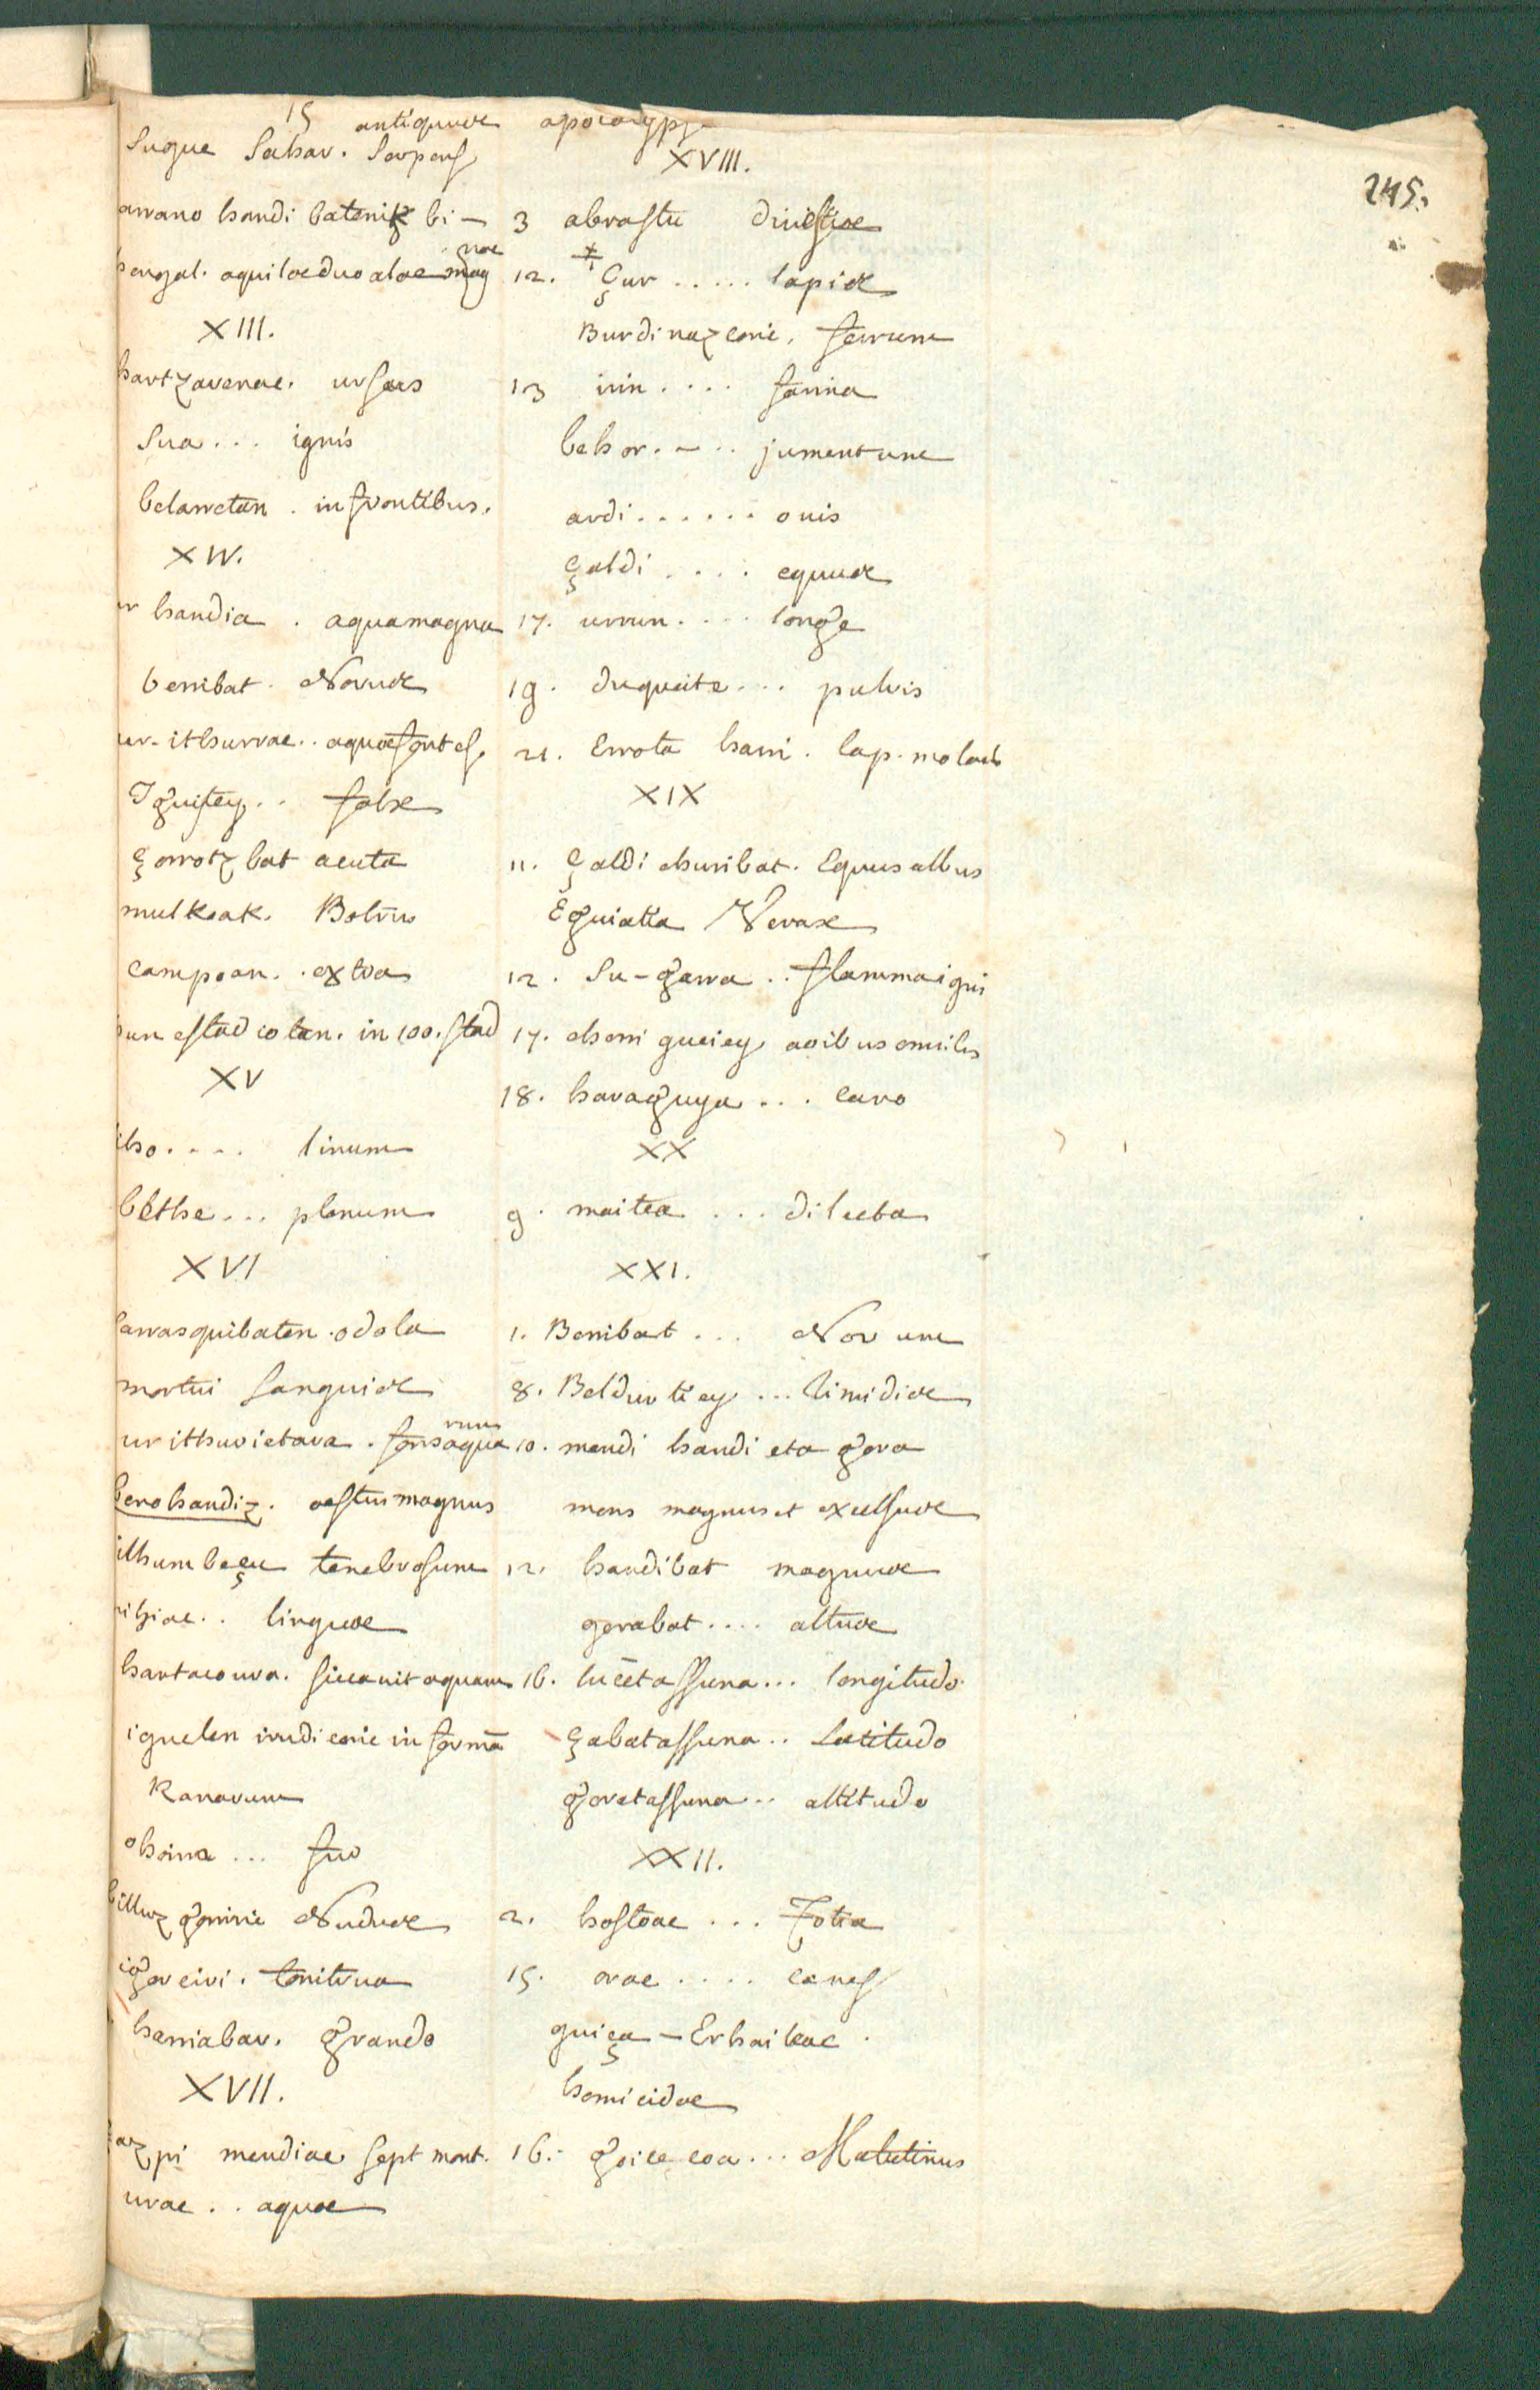 15 antiquus apocalyps
245.
Sugue Sahar. Serpens
arrano handi batenik bi-
hegal. aquilae duo alae mag
nae
XIII.
hartzarenac. ursaes
Sua ... ignis
belarretan . in frontibus.
XIV.
ur handia . aqua magna
berribat . Novus
ur-ithurrac .. aquae fontes.
Iguitey .. falx
çorrotz bat acuta
mulkoak. Botrus
campoan .. extra
hun estadiotan. in 100. stad
XV
liho .... linum
bethe ... plenum
XVI
sarrasquibaten . odola
mortui sanguis
ur ithurietara . fons aqua
rum
bero handiz. aestus magnus
ilhumbeçu tenebrosum
mihiac .. linguae
hartaco ura. siccavit aquam
iguelen irudi eric in formā
Ranarum
ohoina ... fur
billuz gorriric Nudus
igorciri. tonitrua
harriabar. grando
XVII.
çazpi mendiac sept mont.
urac .. aquae
XVIII.
3 abrastu divitiae
12. çur ..... lapis
Burdinazcoric. ferrum
13 irin .... farina
behor .... jumentum
ardi ...... ovis
çaldi .... equus
17. urrun .... longe
19. duqueite ... pulvis
21. Errota harri . lap. molaris
XIX
11. çaldi churibat. Equus albus
Eguiatia Verax
12. Su-garra .. flamma igni
17. chorri gueiey avibus omnibs
18. haraguya ... caro
XX
9. maitea ... dilecta
XXI.
1. Berribat ... Novum
8. Beldurtiey ... timidis
10. mendi handi eta gora
mons magnus et excelsus
12. handibat magnus
gorabat .... altus
16. lucetassuna ... longitudo
çabaltassuna .. Latitudo
goratassuna .. altitudo
XXII.
2. hostoac ... Folia
15. orac .... canes
guiça-Erhaileac .
homicidae
16. goicecoa ... Matutinus